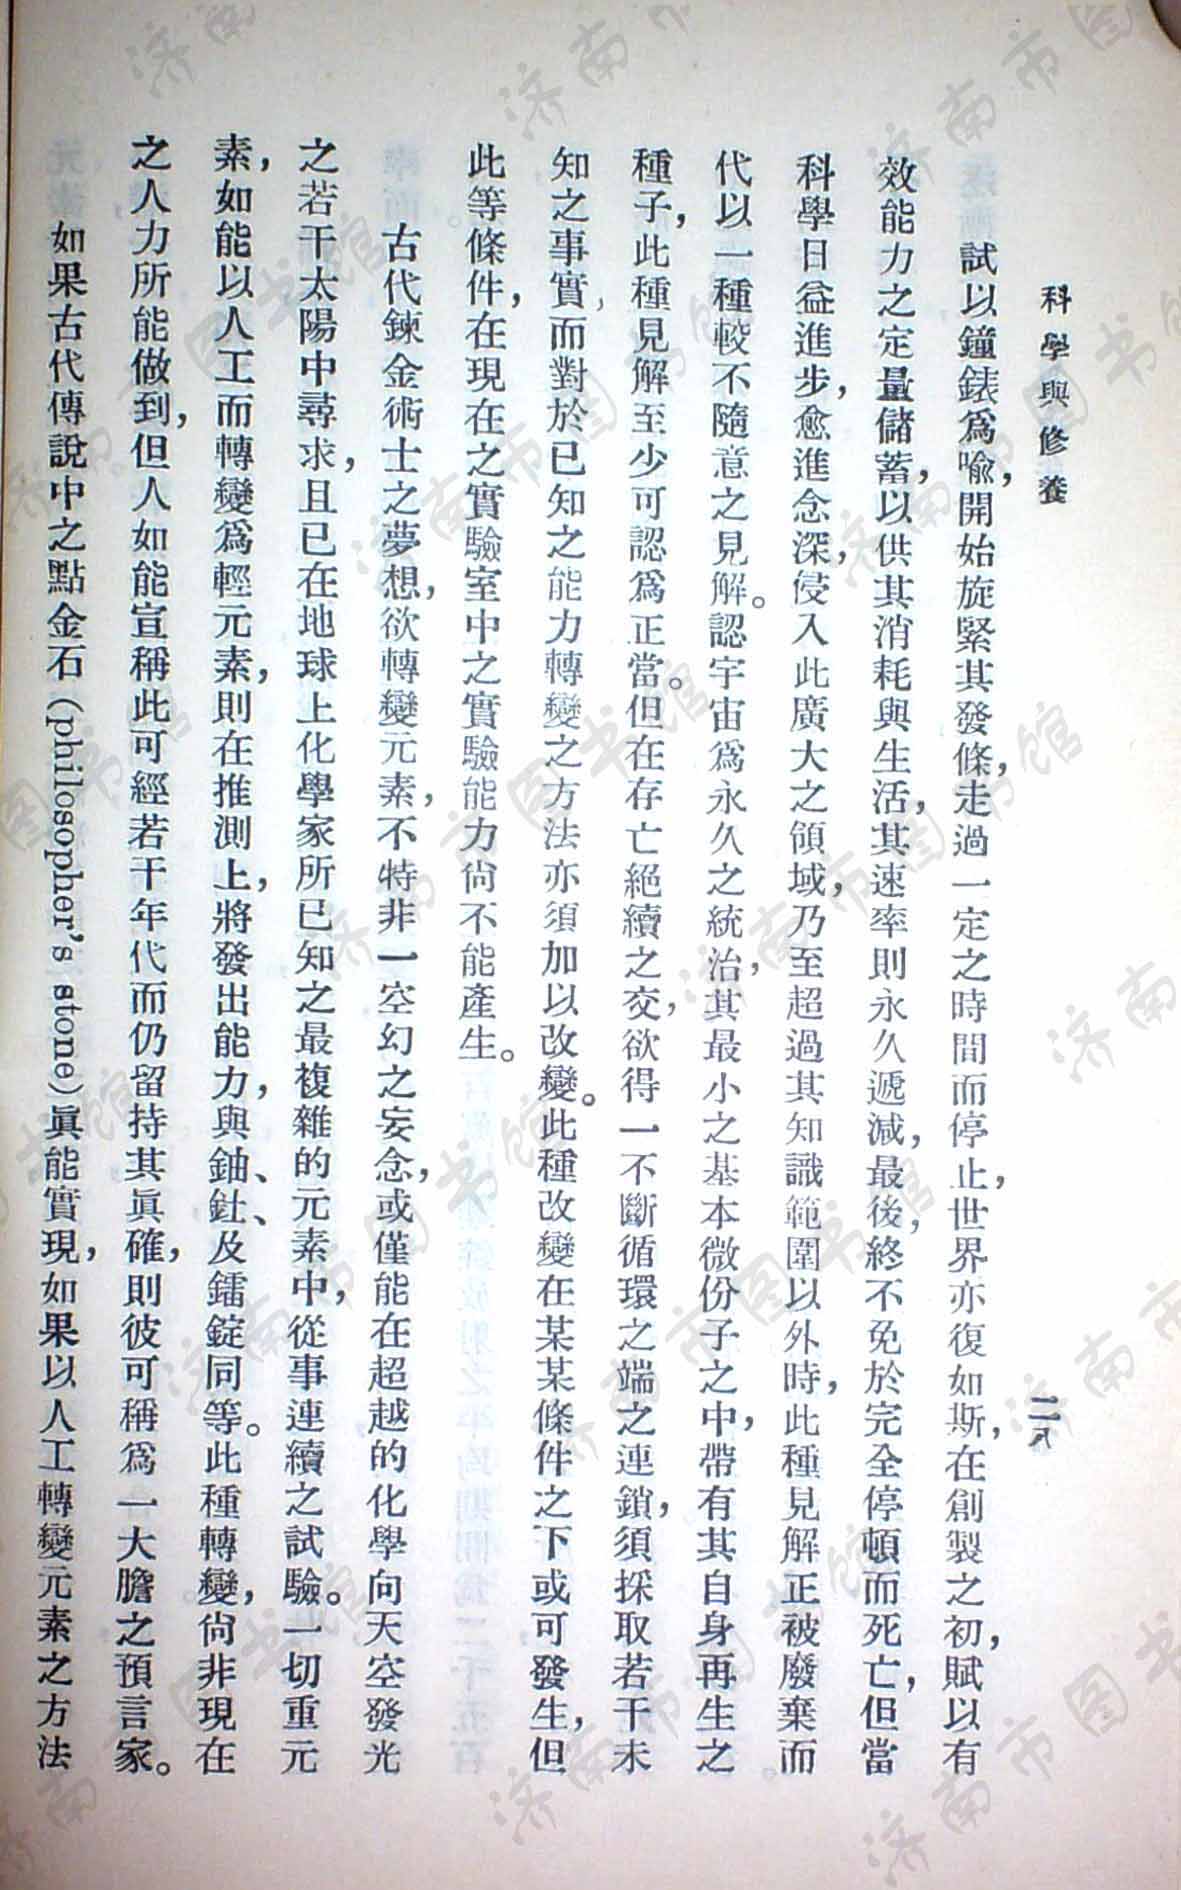 科學與修養
二八
試以鐘錶爲喩，開始旋緊其發條，走過一定之時間而停止，世界亦復如斯，在創製之初，賦以有
效能力之定量儲蓄，以供其消耗與生活，其速率則永久遞減，最後，終不免於完全停頓而死亡，但當
科學日益進步，愈進念深，侵入此廣大之領域，乃至超過其知識範圍以外時，此種見解正被廢棄而
代以一種較不隨意之見解。認宇宙爲永久之統治，其最小之基本微份子之中，帶有其自身再生之
種子，此種見解至少可認爲正當。但在存亡絕續之交，欲得一不斷循環之端之連鎖，須採取若干未
知之事實，而對於已知之能力轉變之方法亦須加以改變。此種改變在某某條件之下或可發生，但
此等條件，在現在之實驗室中之實驗能力尙不能產生。
古代鍊金術士之夢想，欲轉變元素，不特非一空幻之妄念，或僅能在超越的化學向天空發光
之若干太陽中尋求，且已在地球上化學家所已知之最複雜的元素中，從事連續之試驗。一切重元
素，如能以人工而轉變爲輕元素，則在推測上，將發出能力，與鈾、釷、及鐳錠同等。此種轉變，尙非現在
之人力所能做到，但人如能宣稱此可經若干年代而仍留持其眞確，則彼可稱爲一大膽之預言家。
如果古代傳說中之點金石(philosopher's stone)眞能實現，如果以人工轉變元素之方法
济南市图书馆